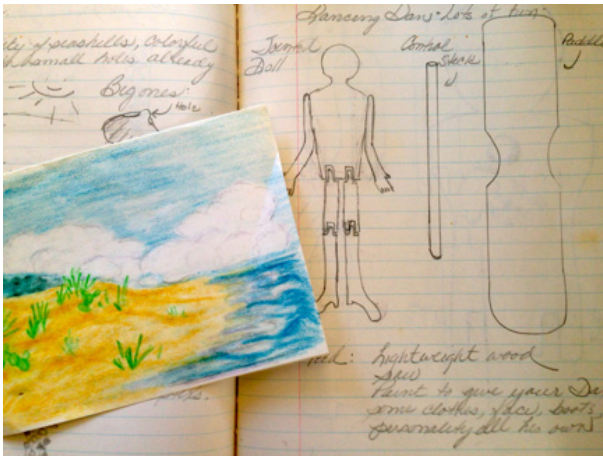 of seashells, colorful
small holes already
Big ones:
Hole
Dancing Dan: Lots of fun
Jointed
Doll
Control
Stick
Paddle
Lightweight wood
Saw
Paint to give your Da
some clothes, face, boots,
personality all his own